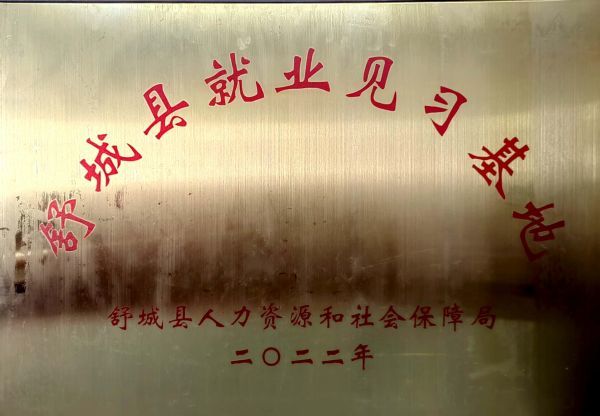 舒城县就业见习基地
舒城县人力资源和社会保障局
二〇二二年